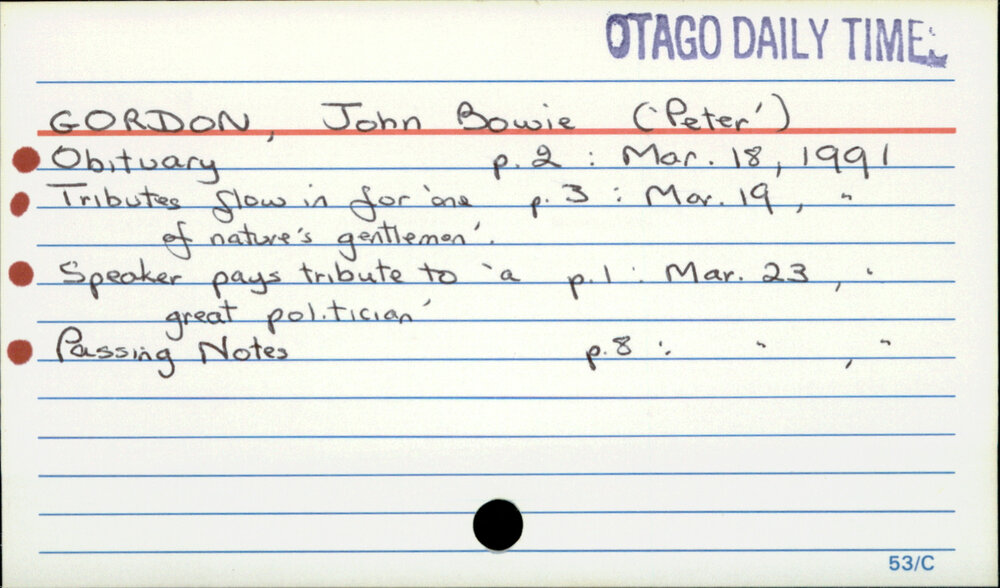 OTAGO DAILY TIMES
GORDON, John Bowie ('Peter')
Obituary p. 2 : Mar. 18, 1991
Tributes flow in for 'one p. 3 : Mar. 19, "
of nature's gentlemen'.
Speaker pays tribute to 'a p. 1 : Mar. 23, "
great politician'
Passing Notes p. 8 : " , "
53/C